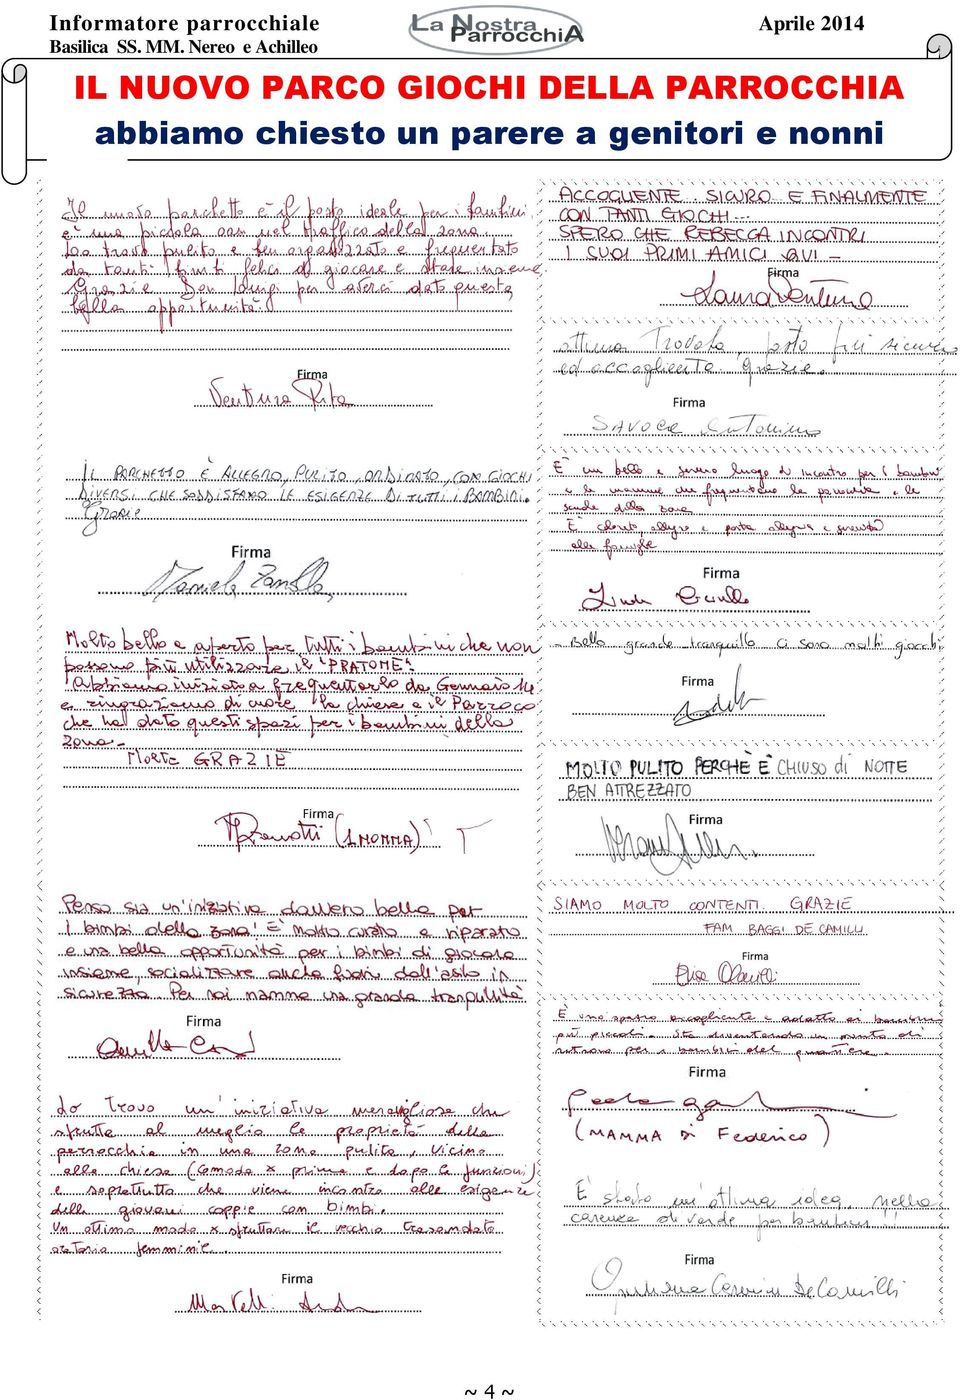 Informatore parrocchiale
Basilica SS. MM. Nereo e Achilleo
La Nostra
ParrocchiA
Aprile 2014
IL NUOVO PARCO GIOCHI DELLA PARROCCHIA
abbiamo chiesto un parere a genitori e nonni
Il nuovo parchetto è il posto ideale per i bambini
è una piccola oasi nel traffico della zona
Lo trovo pulito e ben organizzato e frequentato
da tanti bimbi felici di giocare e stare insieme.
Grazie Don Luigi per averci dato questa
bella opportunità!
Firma
Ventura Rita
IL PARCHETTO È ALLEGRO, PULITO, ORDINATO, CON GIOCHI
DIVERSI CHE SODDISFANO LE ESIGENZE DI TUTTI I BAMBINI.
Grazie
Firma
Daniela Zanella
Molto bello e aperto per tutti i bambini che non
possono più utilizzare il "PRATONE".
Abbiamo iniziato a frequentarlo da Gennaio 14
e ringraziamo di cuore la chiesa e il Parroco
che ha dato questi spazi per i bambini della
zona -
Molte GRAZIE
Firma
(1 NONNA)
Penso sia un'iniziativa davvero bella per
i bimbi della zona! È molto curato e riparato
e una bella opportunità per i bimbi di giocare
insieme, socializzare anche fuori dall'asilo in
sicurezza. Per noi mamme una grande tranquillità
Firma
Lo trovo un'iniziativa meravigliosa che
sfrutta al meglio le proprietà della
parrocchia in una zona pulita, vicino
alla chiesa (comodo x prima e dopo le funzioni)
e soprattutto che viene incontro alle esigenze
delle giovani coppie con bimbi.
Un ottimo modo x sfruttare il vecchio trascurato
oratorio femminile.
Firma
Martelli
ACCOGLIENTE. SICURO E FINALMENTE
CON TANTI GIOCHI...
SPERO CHE REBECCA INCONTRI
I SUOI PRIMI AMICI QUI -
Firma
Laura Ventura
ottima trovata, posto più sicuro
ed accogliente. Grazie.
Firma
SAVOCA Antonino
È un bello e sereno luogo di incontro per i bambini
e le mamme che frequentano la parrocchia e le
scuole della zona
È colorato, allegro e porta allegria e serenità
alle famiglie
Firma
Bello grande tranquillo ci sono molti giochi
Firma
MOLTO PULITO PERCHÈ È CHIUSO di NOTTE
BEN ATTREZZATO
Firma
SIAMO MOLTO CONTENTI. GRAZIE
FAM BAGGI DE CAMILLI
Firma
È uno spazio accogliente e adatto ai bambini
più piccoli. Sta diventando un punto di
ritrovo per i bambini del quartiere.
Firma
(MAMMA DI Federico)
È stata un'ottima idea, nella
carenza di verde per bambini!!
Firma
De Camilli
~ 4 ~